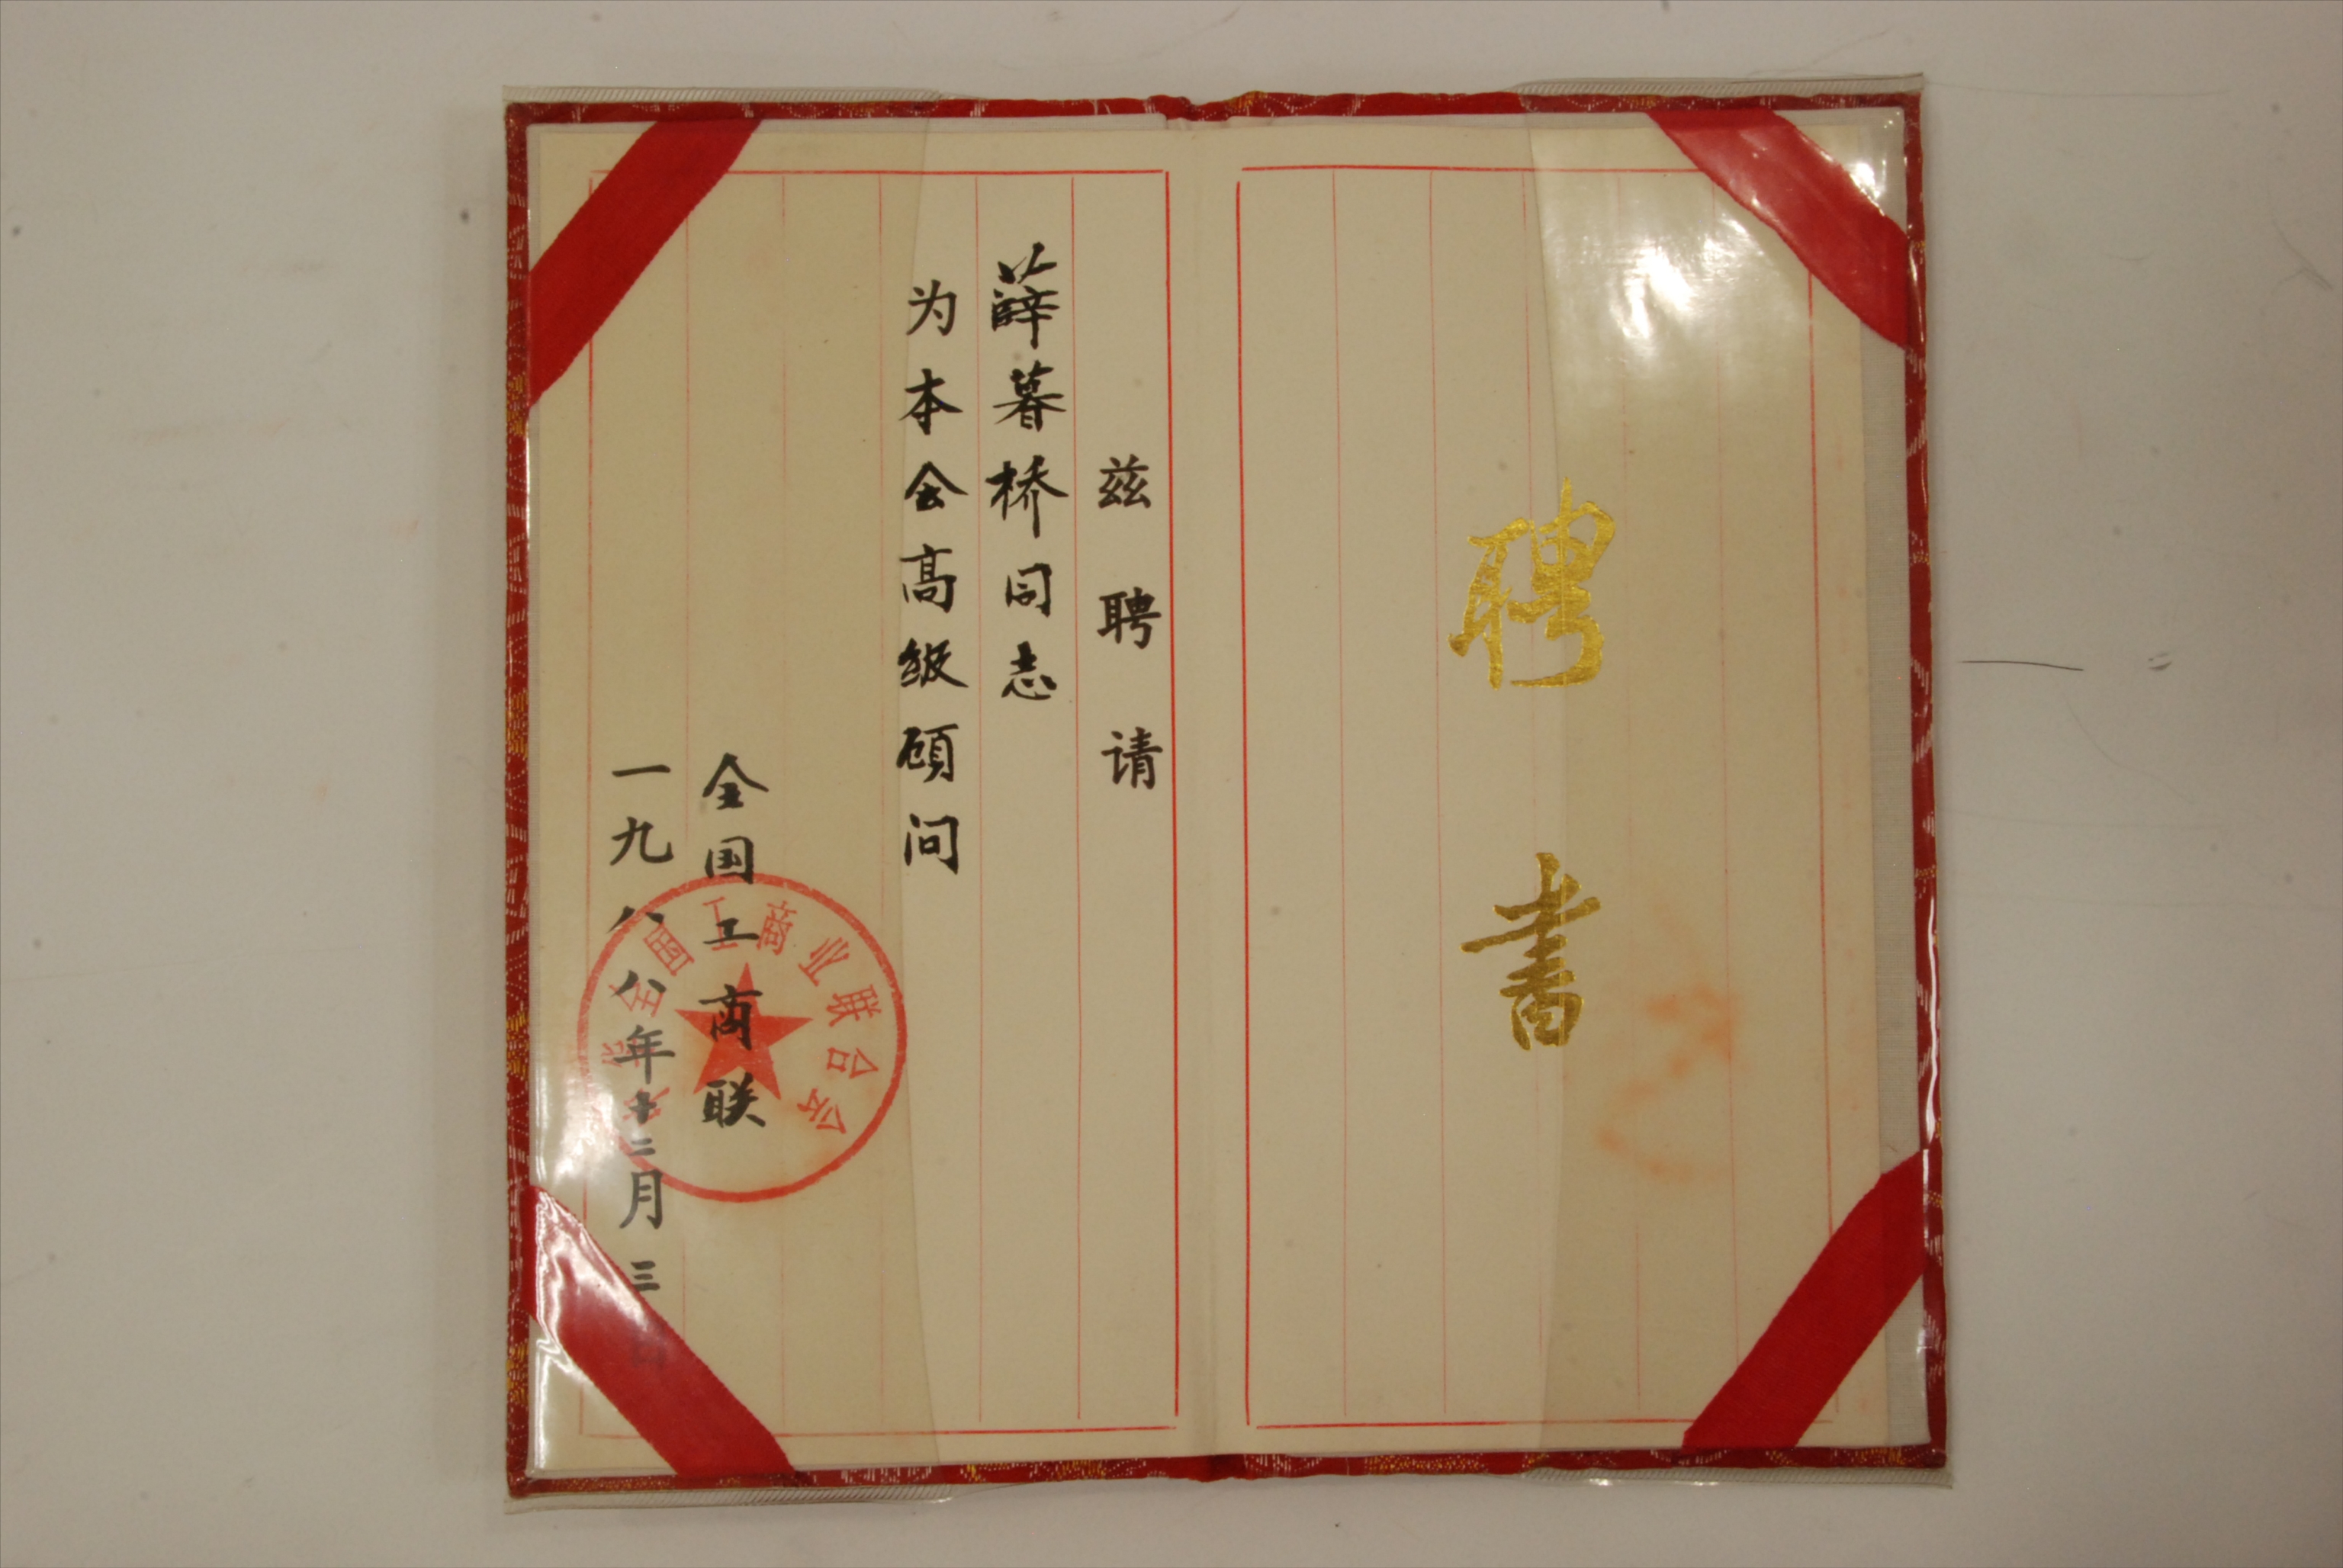 聘書
兹聘请
薛暮桥同志
为本会高级顾问
全国工商联
一九八八年十二月三日
全国工商业联合会